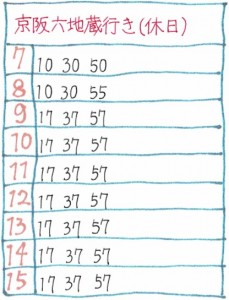 京阪六地蔵行き(休日)
7 10 30 50
8 10 30 55
9 17 37 57
10 17 37 57
11 17 37 57
12 17 37 57
13 17 37 57
14 17 37 57
15 17 37 57